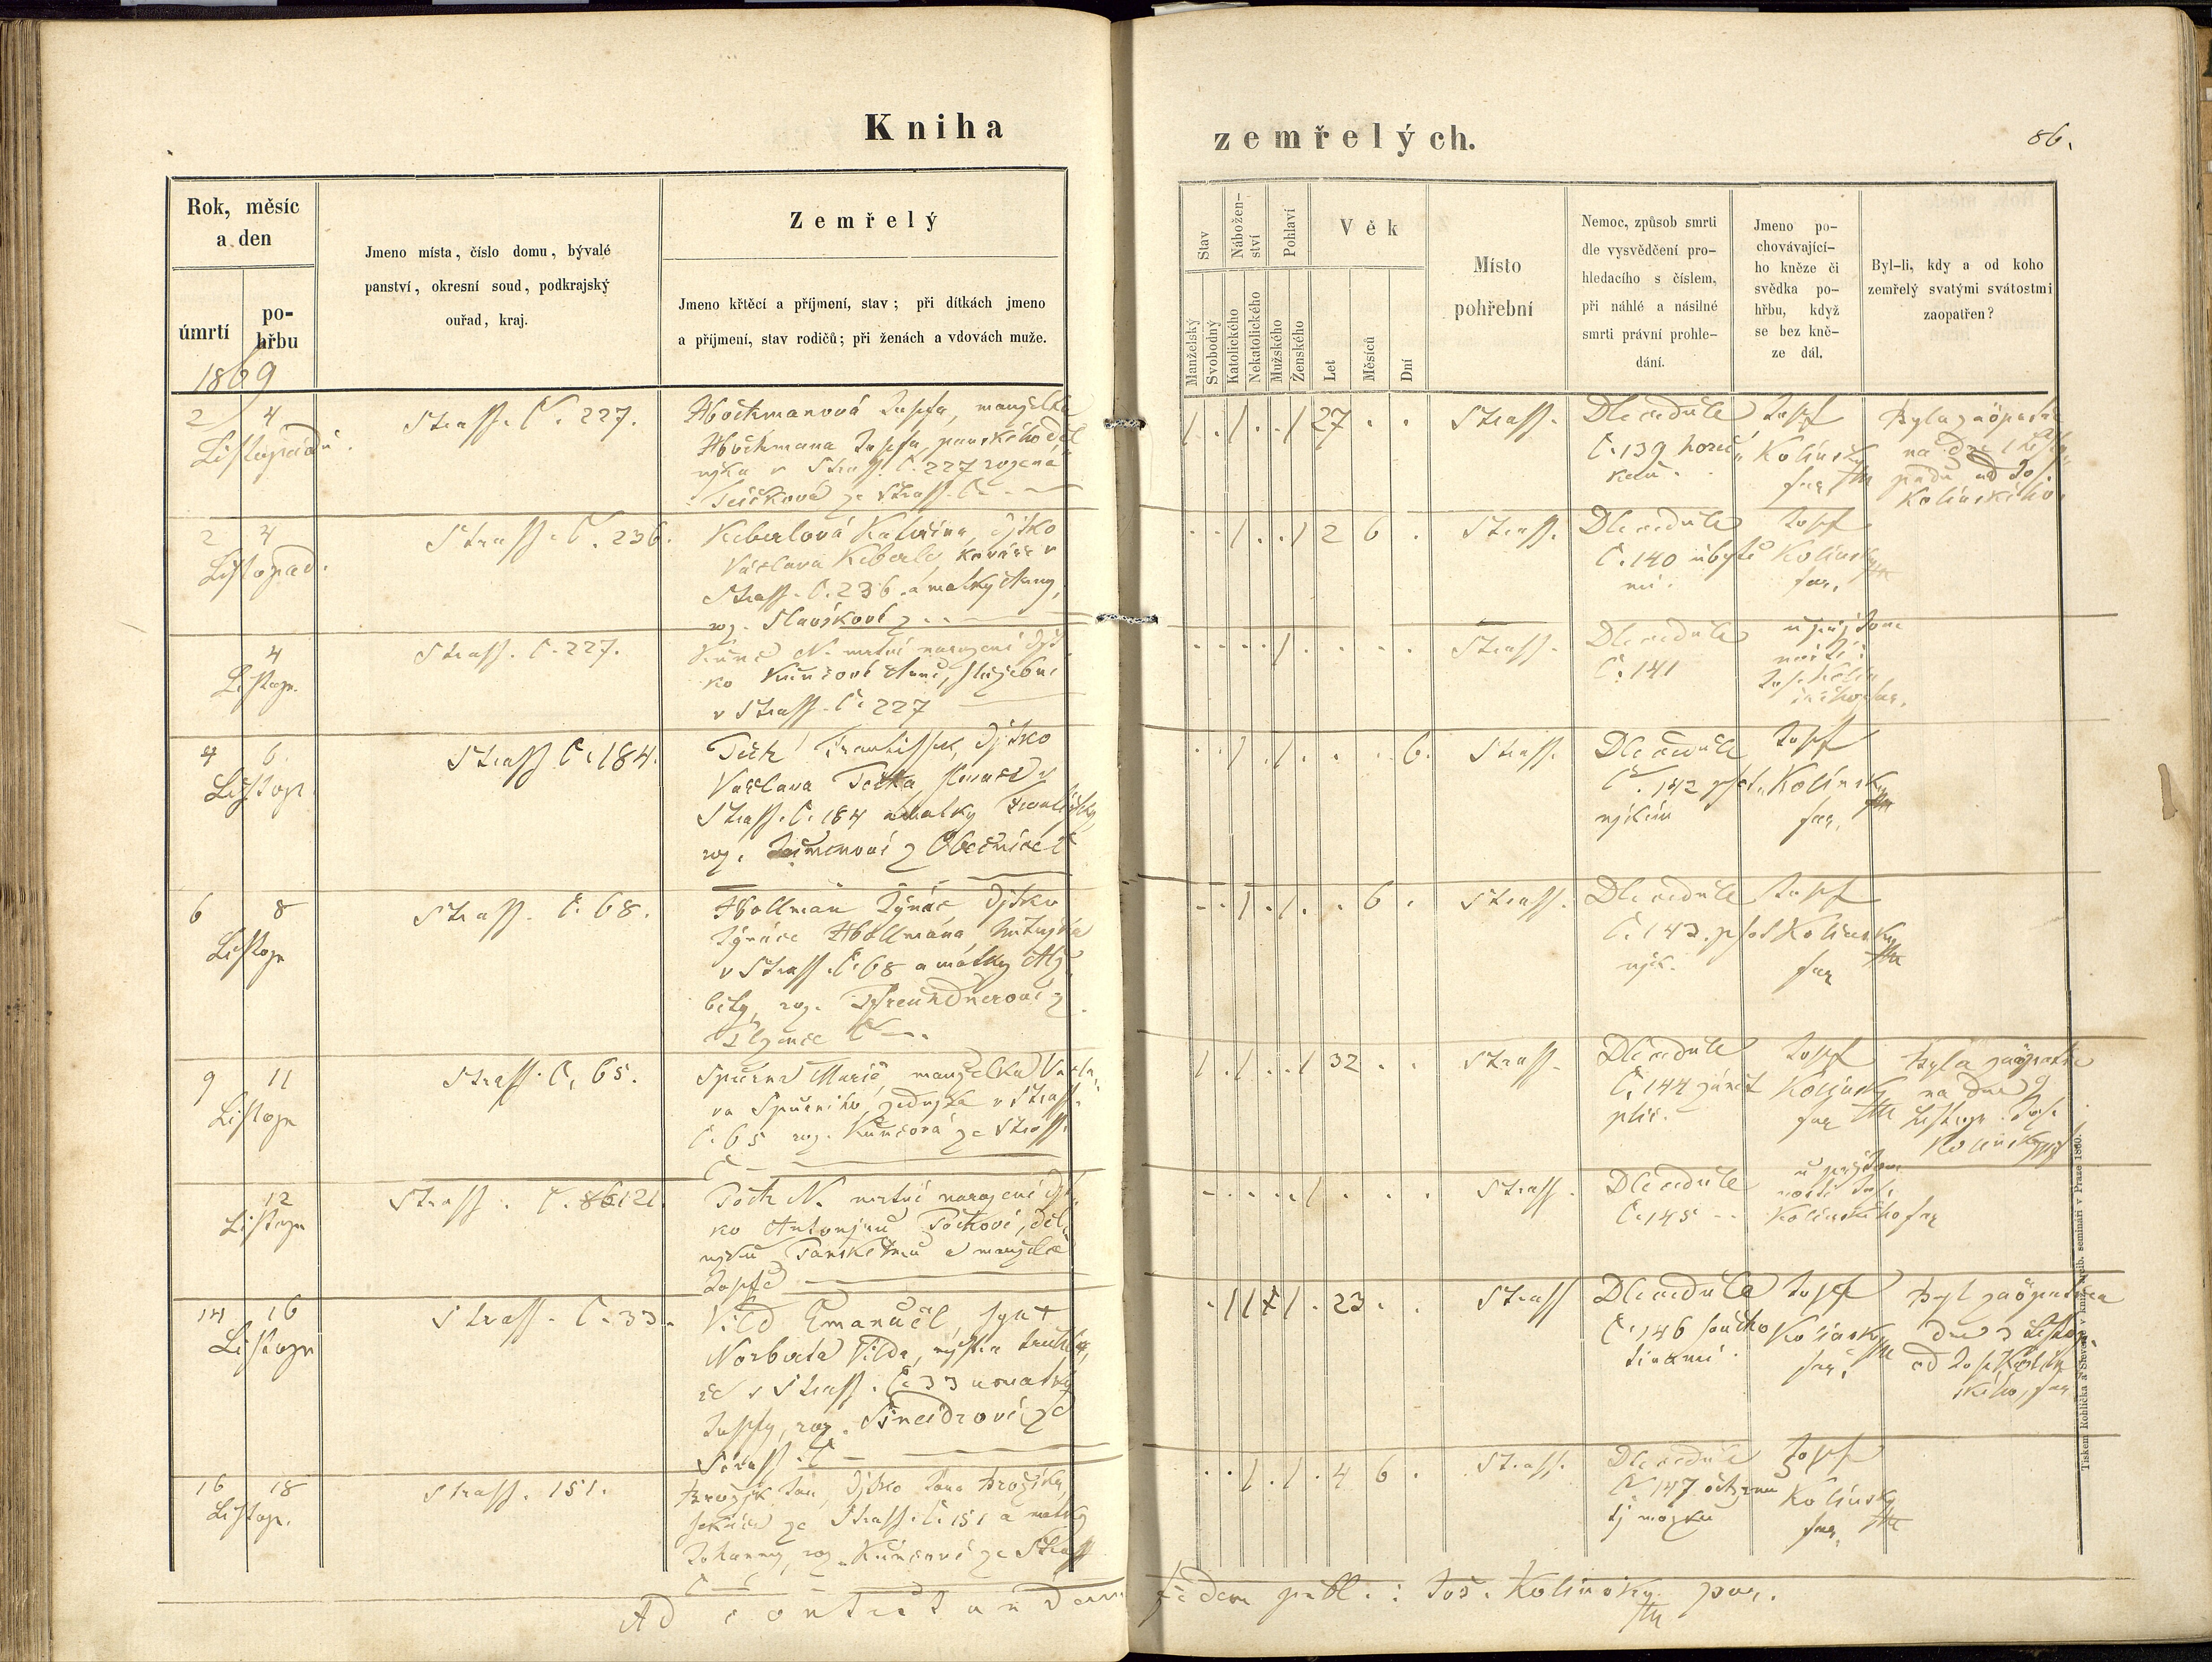 Kniha
zemřelých.
86.
Rok, měsíc
a den
úmrtí
po-
hřbu
1869
Jmeno místa, číslo domu, bývalé
panství, okresní soud, podkrajský
ouřad, kraj.
Zemřelý
Jmeno křtěcí a příjmení, stav; při dítkách jmeno
a příjmení, stav rodičů; při ženách a vdovách muže.
Stav
Manželský
Svobodný
Nábožen-
ství
Katolického
Nekatolického
Pohlaví
Mužského
Ženského
Věk
Let
Měsíců
Dní
Místo
pohřební
Nemoc, způsob smrti
dle vysvědčení pro-
hledacího s číslem,
při náhlé a násilné
smrti právní prohle-
dání.
Jmeno po-
chovávající-
ho kněze či
svědka po-
hřbu, když
se bez kně-
ze dál.
Byl-li, kdy a od koho
zemřelý svatými svátostmi
zaopatřen?
2 4
Listopadu.
Strass. Č. 227.
Josefa, manželka
Josefa, panského děl
v Strass. Č. 227 rozená
ze Strass. Č.
1 . 1 . . 1 27 . .
Strass.
Dle cedule
Č. 139 horeč
kou.
Josef
Kolínský
far.
Byla zaopatře
na dne 1 Listo
padu od Jos
Kolínského.
2 4
Listopad.
Strass. Č. 236.
Keberlová Kateřina, dítko
Václava Keberle, kováře v
Strass. Č. 236 a matky Anny,
roz. Slavíkové z
. . 1 . . 1 2 6 .
Strass.
Dle cedule
Č. 140 úbytě
mi.
Josef
Kolínský
far.
4
Listop.
Strass. Č. 227.
N. mrtvě narozené dít
ko Kunčové Anně, služebné
v Strass. Č. 227
Strass.
Dle cedule
Č. 141
u přítom
nosti
Jos. Kolín
ského far.
4 6
Listop.
Strass Č. 184.
František, dítko
Václava
Strass. Č. 184 a matky Františky,
roz. z Obecnice Č
. . 1 . 1 . . . 6.
Strass.
Dle cedule
Č. 142 psot
níkem
Josef
Kolínský
far.
6 8
Listop
Strass. Č. 68.
Hollman Ignác dítko
Ignáce Hollmana
v Strass. Č. 68 a matky Alž
běty, roz. z
Č
. . 1 . 1 . . 6 .
Strass.
Dle cedule
Č. 143. psot
ník.
Josef
Kolínský
far
9 11
Listop
Strass. Č. 65.
Spurná Marie, manželka Václa
va Spurného, zedníka v Strass.
Č. 65 roz. Kunčová ze Strass.
Č
1 . 1 . . 1 32 . .
Strass.
Dle cedule
Č. 144 zánět
plic.
Josef
Kolínský
far
Byla zaopatře
na dne 9
Listop. Jos.
Kolínský
12
Listop
Strass. Č. 121.
N. mrtvě narozené dít
ko Antonínu děl
níku Panskému a manželce
Josefě
Strass.
Dle cedule
Č. 145
u přítom
nosti Jos.
Kolínského far
14 16
Listop
Strass. Č. 33.
Vild Emanuel, syn †
Norberta Vilda, mistra truhlá
ře v Strass. Č. 33 a matky
Josefy, roz. Šneidrové ze
Strass. Č
Strass
Dle cedule
Č. 146 soucho
tinami.
Josef
Kolínský
far.
Byl zaopatřen
dne 3 Listop.
od Jos. Kolín
ského, far
16 18
Listop.
Strass. 151.
Brožík Jan, dítko Jana Brožíka,
ze Strass. Č. 151 a matky
Johanny, roz. Kunčové ze Strass
Č
. . 1 . 1 . 4 6 .
Strass.
Dle cedule
Č. 147
mozku
Josef
Kolínský
far.
Ad contestandam fidem publ.: Jos. Kolínský par.
Tiskem Rohlíčka a Sieverse v knížarcib. semináři v Praze 1860.